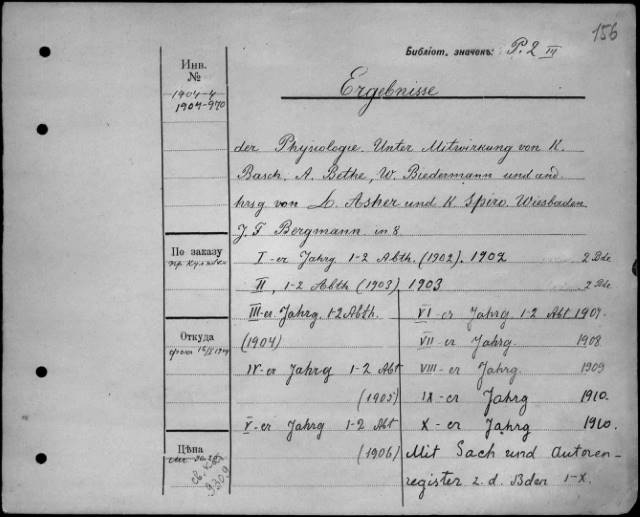 156
Библіот. значекъ: P. 2 III
Инв.
№
1904-4
1904-970
Ergebnisse
der Physiologie. Unter Mitwirkung von K.
Basch, A. Bethe, W. Biedermann und and.
hrsg von L. Asher und K. Spiro. Wiesbaden
J. F. Bergmann. in 8
По заказу
пр. Кулябки
I-er Jahrg 1-2 Abth. (1902). 1902 2 Bde
II, 1-2 Abth (1903) 1903 2 Bde
III-er Jahrg. 1-2 Abth.
(1904)
IV-er Jahrg 1-2 Abt
(1905)
V-er Jahrg 1-2 Abt
(1906)
VI-er Jahrg 1-2 Abt 1907.
VII-er Jahrg. 1908
VIII-er Jahrg. 1909
IX-er Jahrg 1910.
X-er Jahrg 1910.
Mit Sach und Autoren-
register z. d. Bden 1-X.
Откуда
Цѣна
9309